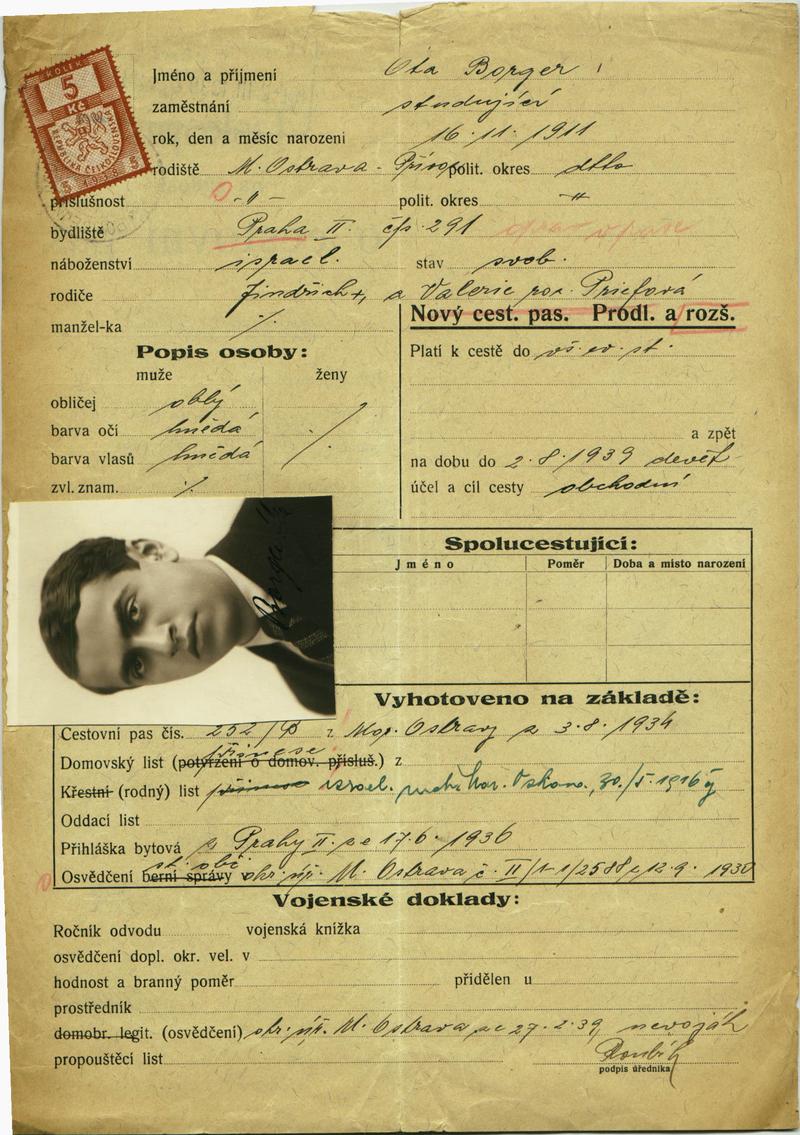 KOLEK
5
Kč
REPUBLIKA ČESKOSLOVENSKÁ
5 1938 5
Jméno a příjmení Ota Borger
zaměstnání studující
rok, den a měsíc narození 16. 11. 1911
rodiště M. Ostrava - Přívoz polit. okres dtto
příslušnost -"- polit. okres -"-
bydliště Praha II. čp. 291
náboženství israel. stav svob.
rodiče Jindřich +, a Valerie roz. Priefová
manžel-ka ./.
Nový cest. pas. Prodl. a rozš.
Popis osoby:
muže ženy
obličej oblý
barva očí hnědá ./.
barva vlasů hnědá
zvl. znam. ./.
Platí k cestě do vš. ev. st.
a zpět
na dobu do 2. 8. 1939 devět
účel a cíl cesty obchodní
Spolucestující:
Jméno Poměr Doba a místo narození
Vyhotoveno na základě:
Cestovní pas čís. 252/ z Mor. Ostravy z 3. 8. 1934
Domovský list (potvrzení o domov. přísluš.) z přinese
Křestní (rodný) list israel. Mor. 30./5. 1916
Oddací list
Přihláška bytová z Prahy II. ze 17. 6. 1936
Osvědčení berní správy st. obč. M. Ostrava č. II/1-1/2588 z 12. 9. 1930
Vojenské doklady:
Ročník odvodu vojenská knížka
osvědčení dopl. okr. vel. v
hodnost a branný poměr přidělen u
prostředník
domobr. legit. (osvědčení) M. Ostrava ze 27. 2. 39, nevoják
propouštěcí list
podpis úředníka